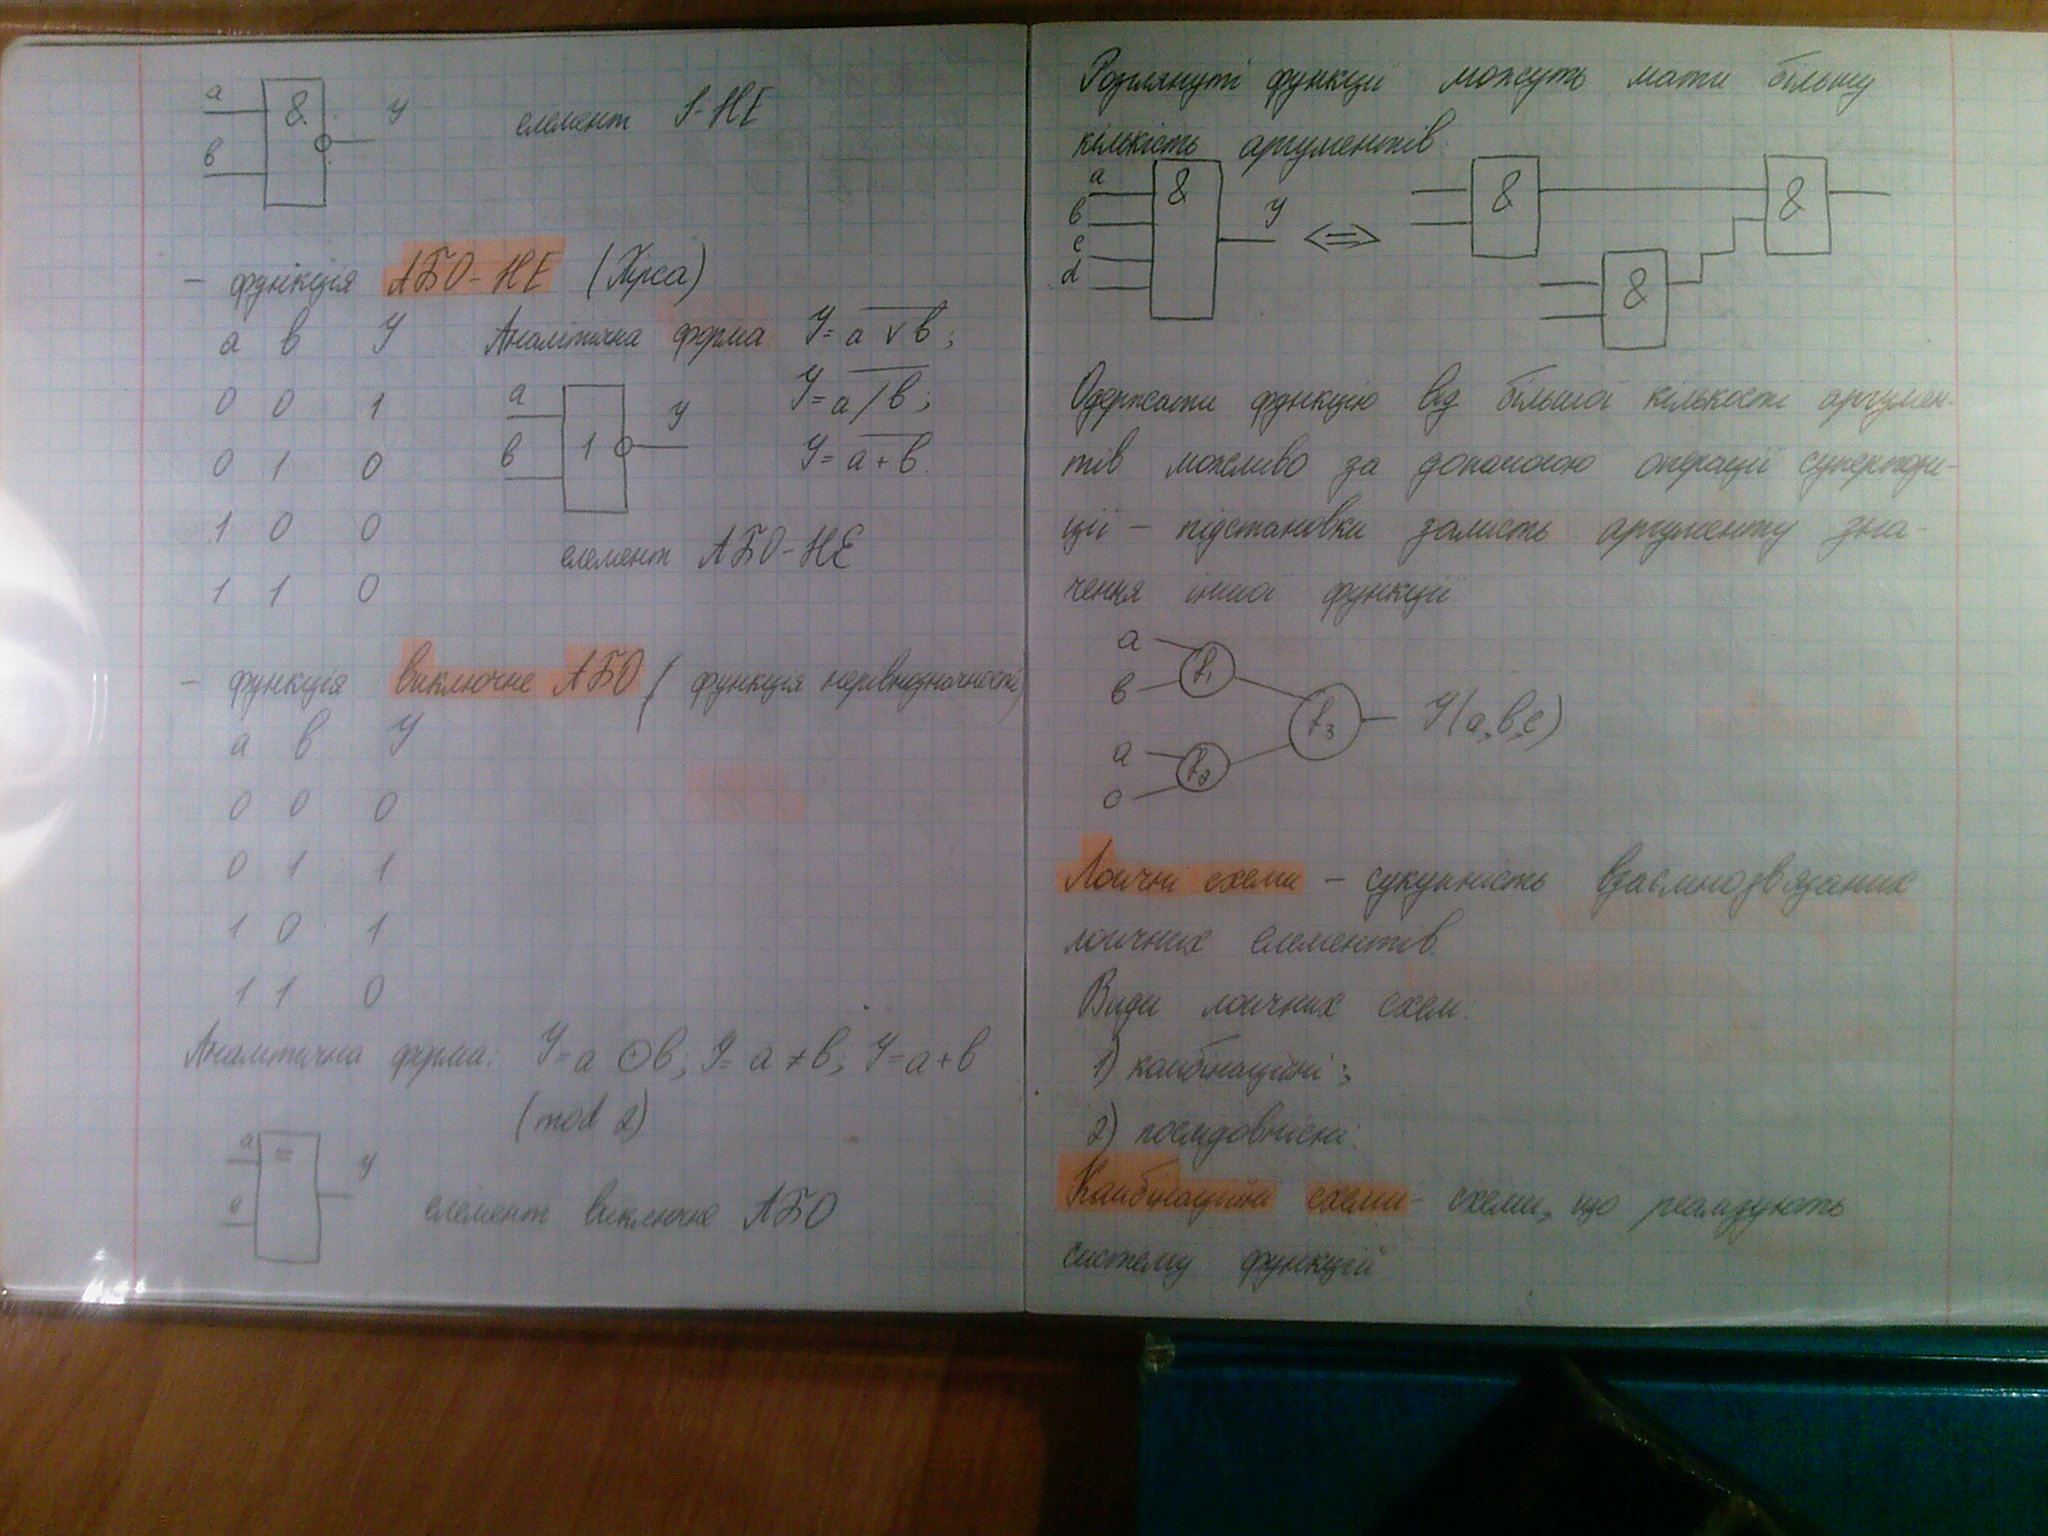 a
&
y
в
елемент І-НЕ
- функція АБО-НЕ (Пірса)
а в y
Аналітична форма: y = a v в;
0 0 1
a
1
y
y = a / в;
0 1 0
в
y = a + в.
1 0 0
елемент АБО-НЕ
1 1 0
- функція виключне АБО (функція нерівнозначності)
а в y
0 0 0
0 1 1
1 0 1
1 1 0
Аналітична форма: y = a ⊕ в; y = a ≠ в; y = a + в
(mod 2)
a
=
y
в
елемент виключне АБО
Розглянуті функції можуть мати більшу
кількість аргументів.
a
в
c
d
&
y
<=>
&
&
&
Одержати функцію від більшої кількості аргумен-
тів можливо за допомогою операції суперпози-
ції - підстановки замість аргументу зна-
чення іншої функції.
a
в
f₁
a
c
f₂
f₃
y(a,в,c)
Логічні схеми - сукупність взаємнозв'язаних
логічних елементів.
Види логічних схем:
1) комбінаційні;
2) послідовнісні.
Комбінаційні схеми - схеми, що реалізують
систему функцій